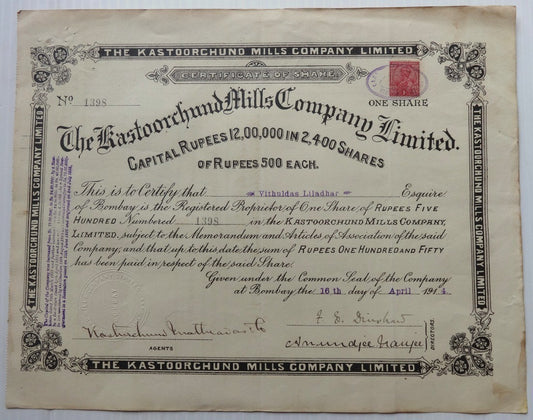 THE KASTOORCHUND MILLS COMPANY LIMITED
CERTIFICATE OF SHARE
No 1398
ONE SHARE
The Kastoorchund Mills Company Limited.
CAPITAL RUPEES 12,00,000 IN 2,400 SHARES
OF RUPEES 500 EACH.
This is to Certify that Vithuldas Liladhar Esquire
of Bombay is the Registered Proprietor of One Share of RUPEES FIVE
HUNDRED Numbered 1398 in the KASTOORCHUND MILLS COMPANY,
LIMITED, subject to the Memorandum and Articles of Association of the said
Company; and that up to this date the sum of RUPEES ONE HUNDRED AND FIFTY
has been paid in respect of the said Share.
Given under the Common Seal of the Company
at Bombay the 16th day of April 1914
F. E. Dinshaw
AGENTS
DIRECTORS.
THE KASTOORCHUND MILLS COMPANY LIMITED
THE KASTOORCHUND MILLS COMPANY LIMITED
THE KASTOORCHUND MILLS COMPANY LIMITED